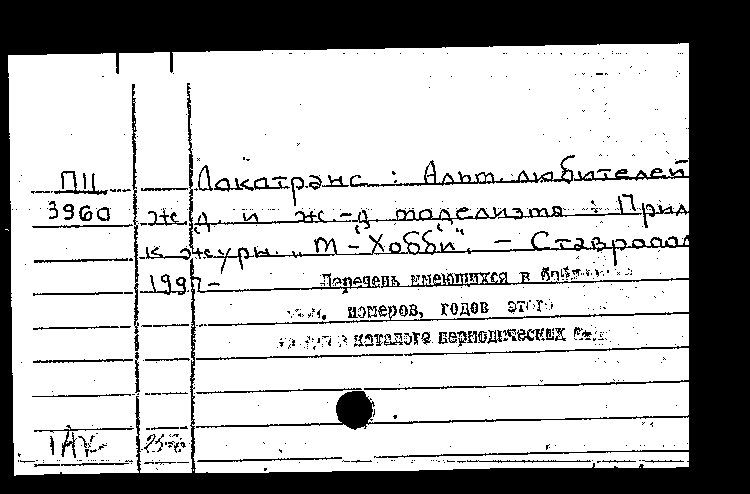 П11 Локотранс : Альм. любителей
3960 ж. д. и ж.-д. моделизма : Прил.
к журн. "М-Хобби". - Ставропол
1997-
Перечень имеющихся в
номеров, годов этого
каталоге периодических